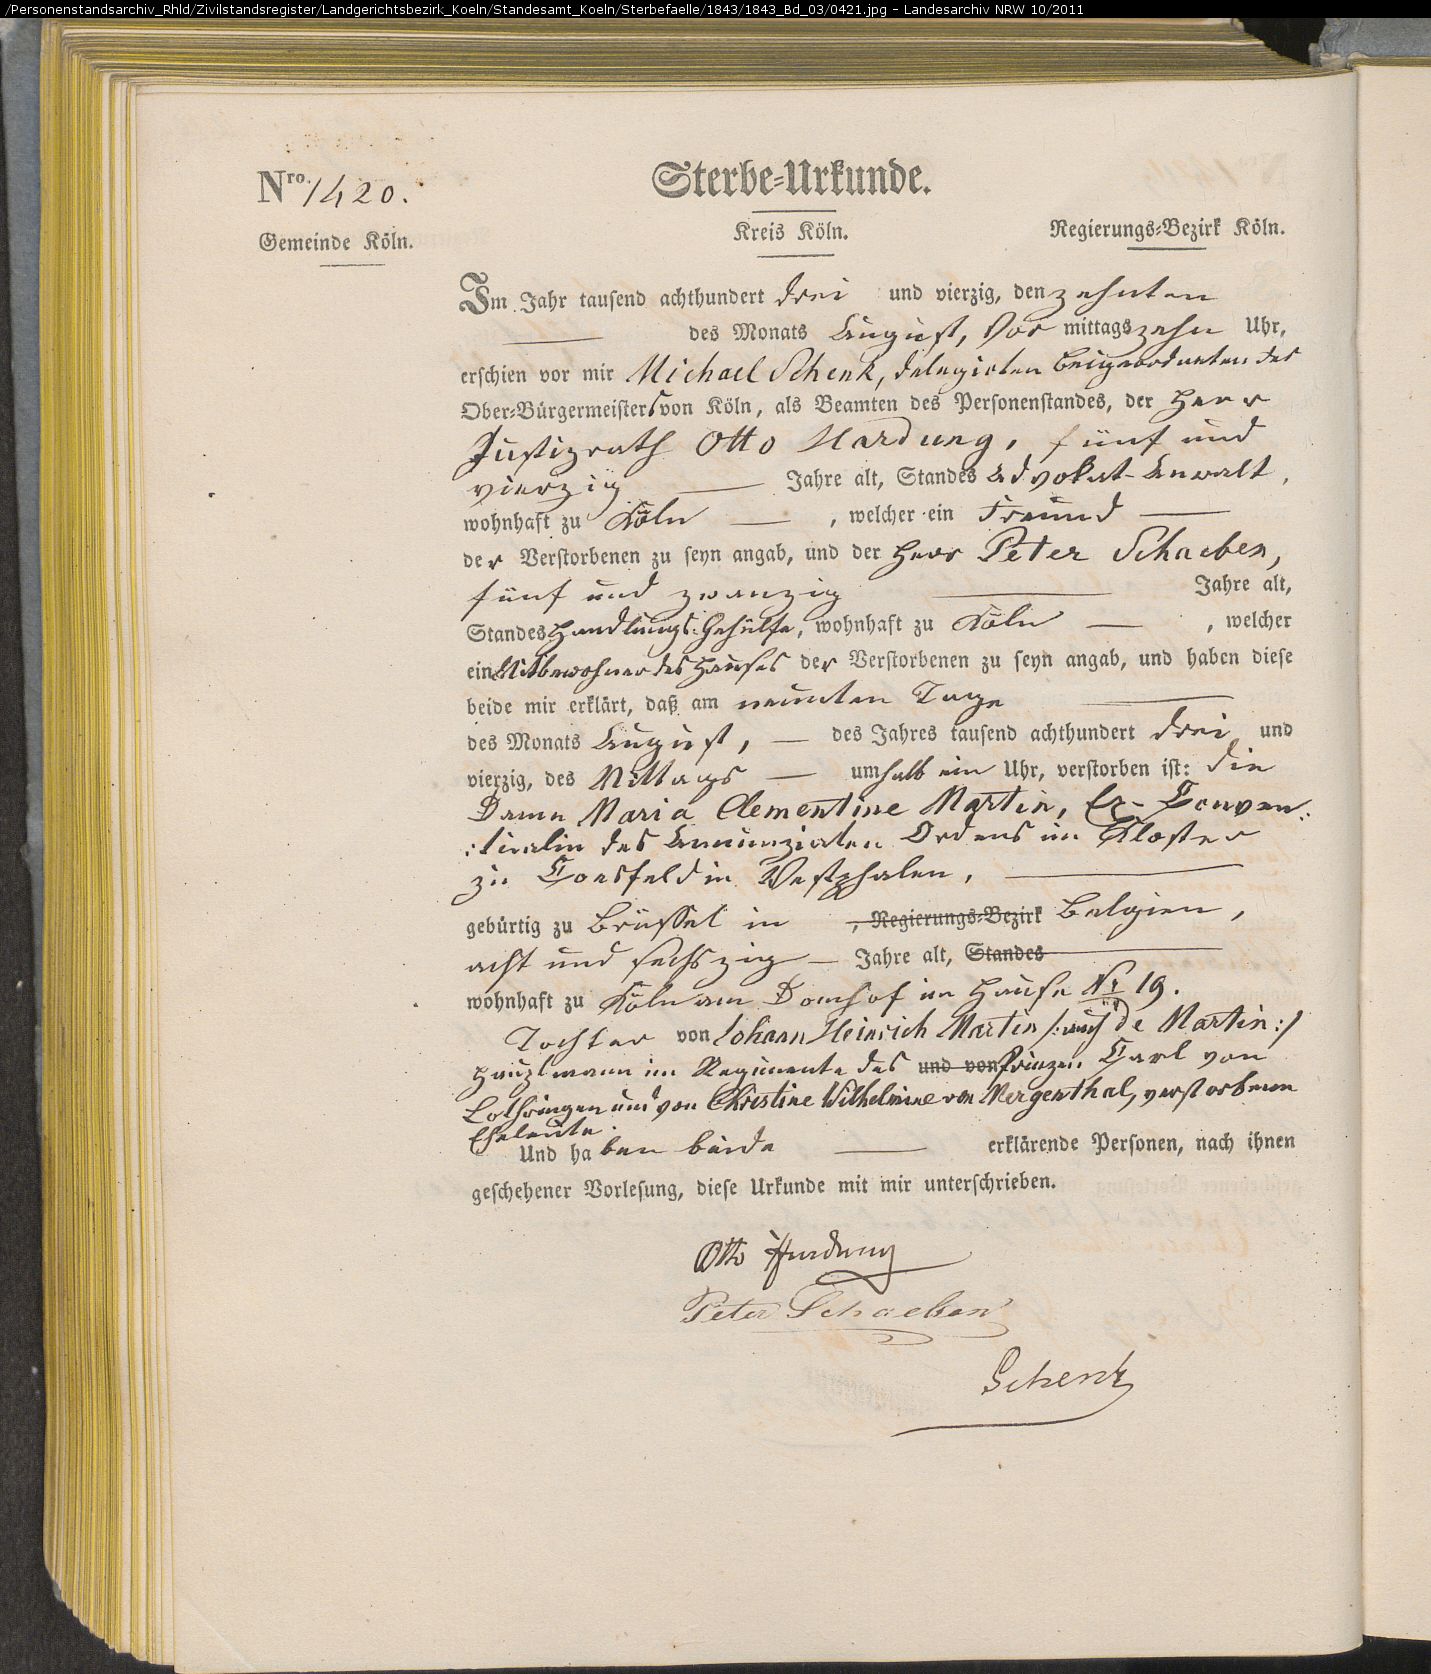 /Personenstandsarchiv_Rhld/Zivilstandsregister/Landgerichtsbezirk_Koeln/Standesamt_Koeln/Sterbefaelle/1843/1843_Bd_03/0421.jpg - Landesarchiv NRW 10/2011
Nro. 1420.
Sterbe-Urkunde.
Gemeinde Köln.
Kreis Köln.
Regierungs-Bezirk Köln.
Im Jahr tausend achthundert drei und vierzig, den zehnten
des Monats August, Vor mittags zehn Uhr,
erschien vor mir Michael Schenk, delegirten Beigeordneten des
Ober-Bürgermeisters von Köln, als Beamten des Personenstandes, der Herr
Justizrath Otto Hardung, fünf und
vierzig Jahre alt, Standes Advokat-Anwalt,
wohnhaft zu Köln, welcher ein Freund
der Verstorbenen zu seyn angab, und der Herr Peter Schaeben,
fünf und zwanzig Jahre alt,
Standes Handlungs-Gehülfe, wohnhaft zu Köln, welcher
ein Mitbewohner des Hauses der Verstorbenen zu seyn angab, und haben diese
beide mir erklärt, daß am neunten Tage
des Monats August, des Jahres tausend achthundert drei und
vierzig, des Mittags um halb ein Uhr, verstorben ist: die
Dame Maria Clementine Martin, Ex-Conven:
:tualin des Annunziaten Ordens im Kloster
zu Coesfeld in Westphalen,
gebürtig zu Brüssel in , Regierungs-Bezirk Belgien,
acht und sechszig Jahre alt, Standes
wohnhaft zu Köln am Domhof im Hause Nr 19.
Tochter von Johann Heinrich Martin /: auch de Martin :/
Hauptmann im Regimente des und von Prinzen Carl von
Lothringen und von Christine Wilhelmine von Mergenthal, verstorbenen
Eheleute.
Und haben beide erklärende Personen, nach ihnen
geschehener Vorlesung, diese Urkunde mit mir unterschrieben.
Otto Hardung
Peter Schaeben
Schenk